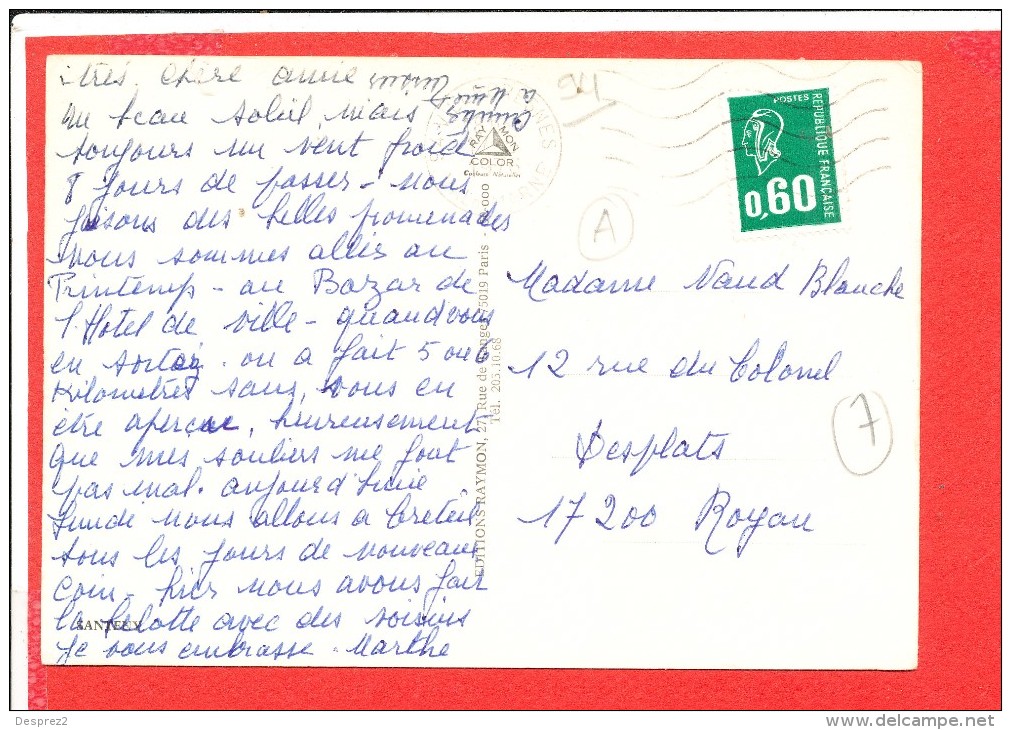 très chère amie
un beau soleil, mais
toujours un vent froid
8 jours de passer - nous
faisons des belles promenades
nous sommes allés au
Printemps - au Bazar de
l'Hotel de ville - quand vous
en sortez. on a fait 5 ou 6
Kilometres sans, vous en
être aperçue, heureusement
que mes souliers me font
pas mal. aujourd'huie
Lundi nous allons a Creteil
tous les jours de nouveaux
coin - hier nous avons fait
la belotte avec des voisins
Je vous embrasse - Marthe
SANTEUY
RAYMON
COLOR
EDITIONS RAYMON, 27, Rue de 75019 Paris
Tél. 205.10.68
POSTES
REPUBLIQUE FRANÇAISE
0,60
A
Madame Naud Blanche
12 rue du Colonel
Desplats
17200 Royan
7
Desprez2
www.delcampe.net